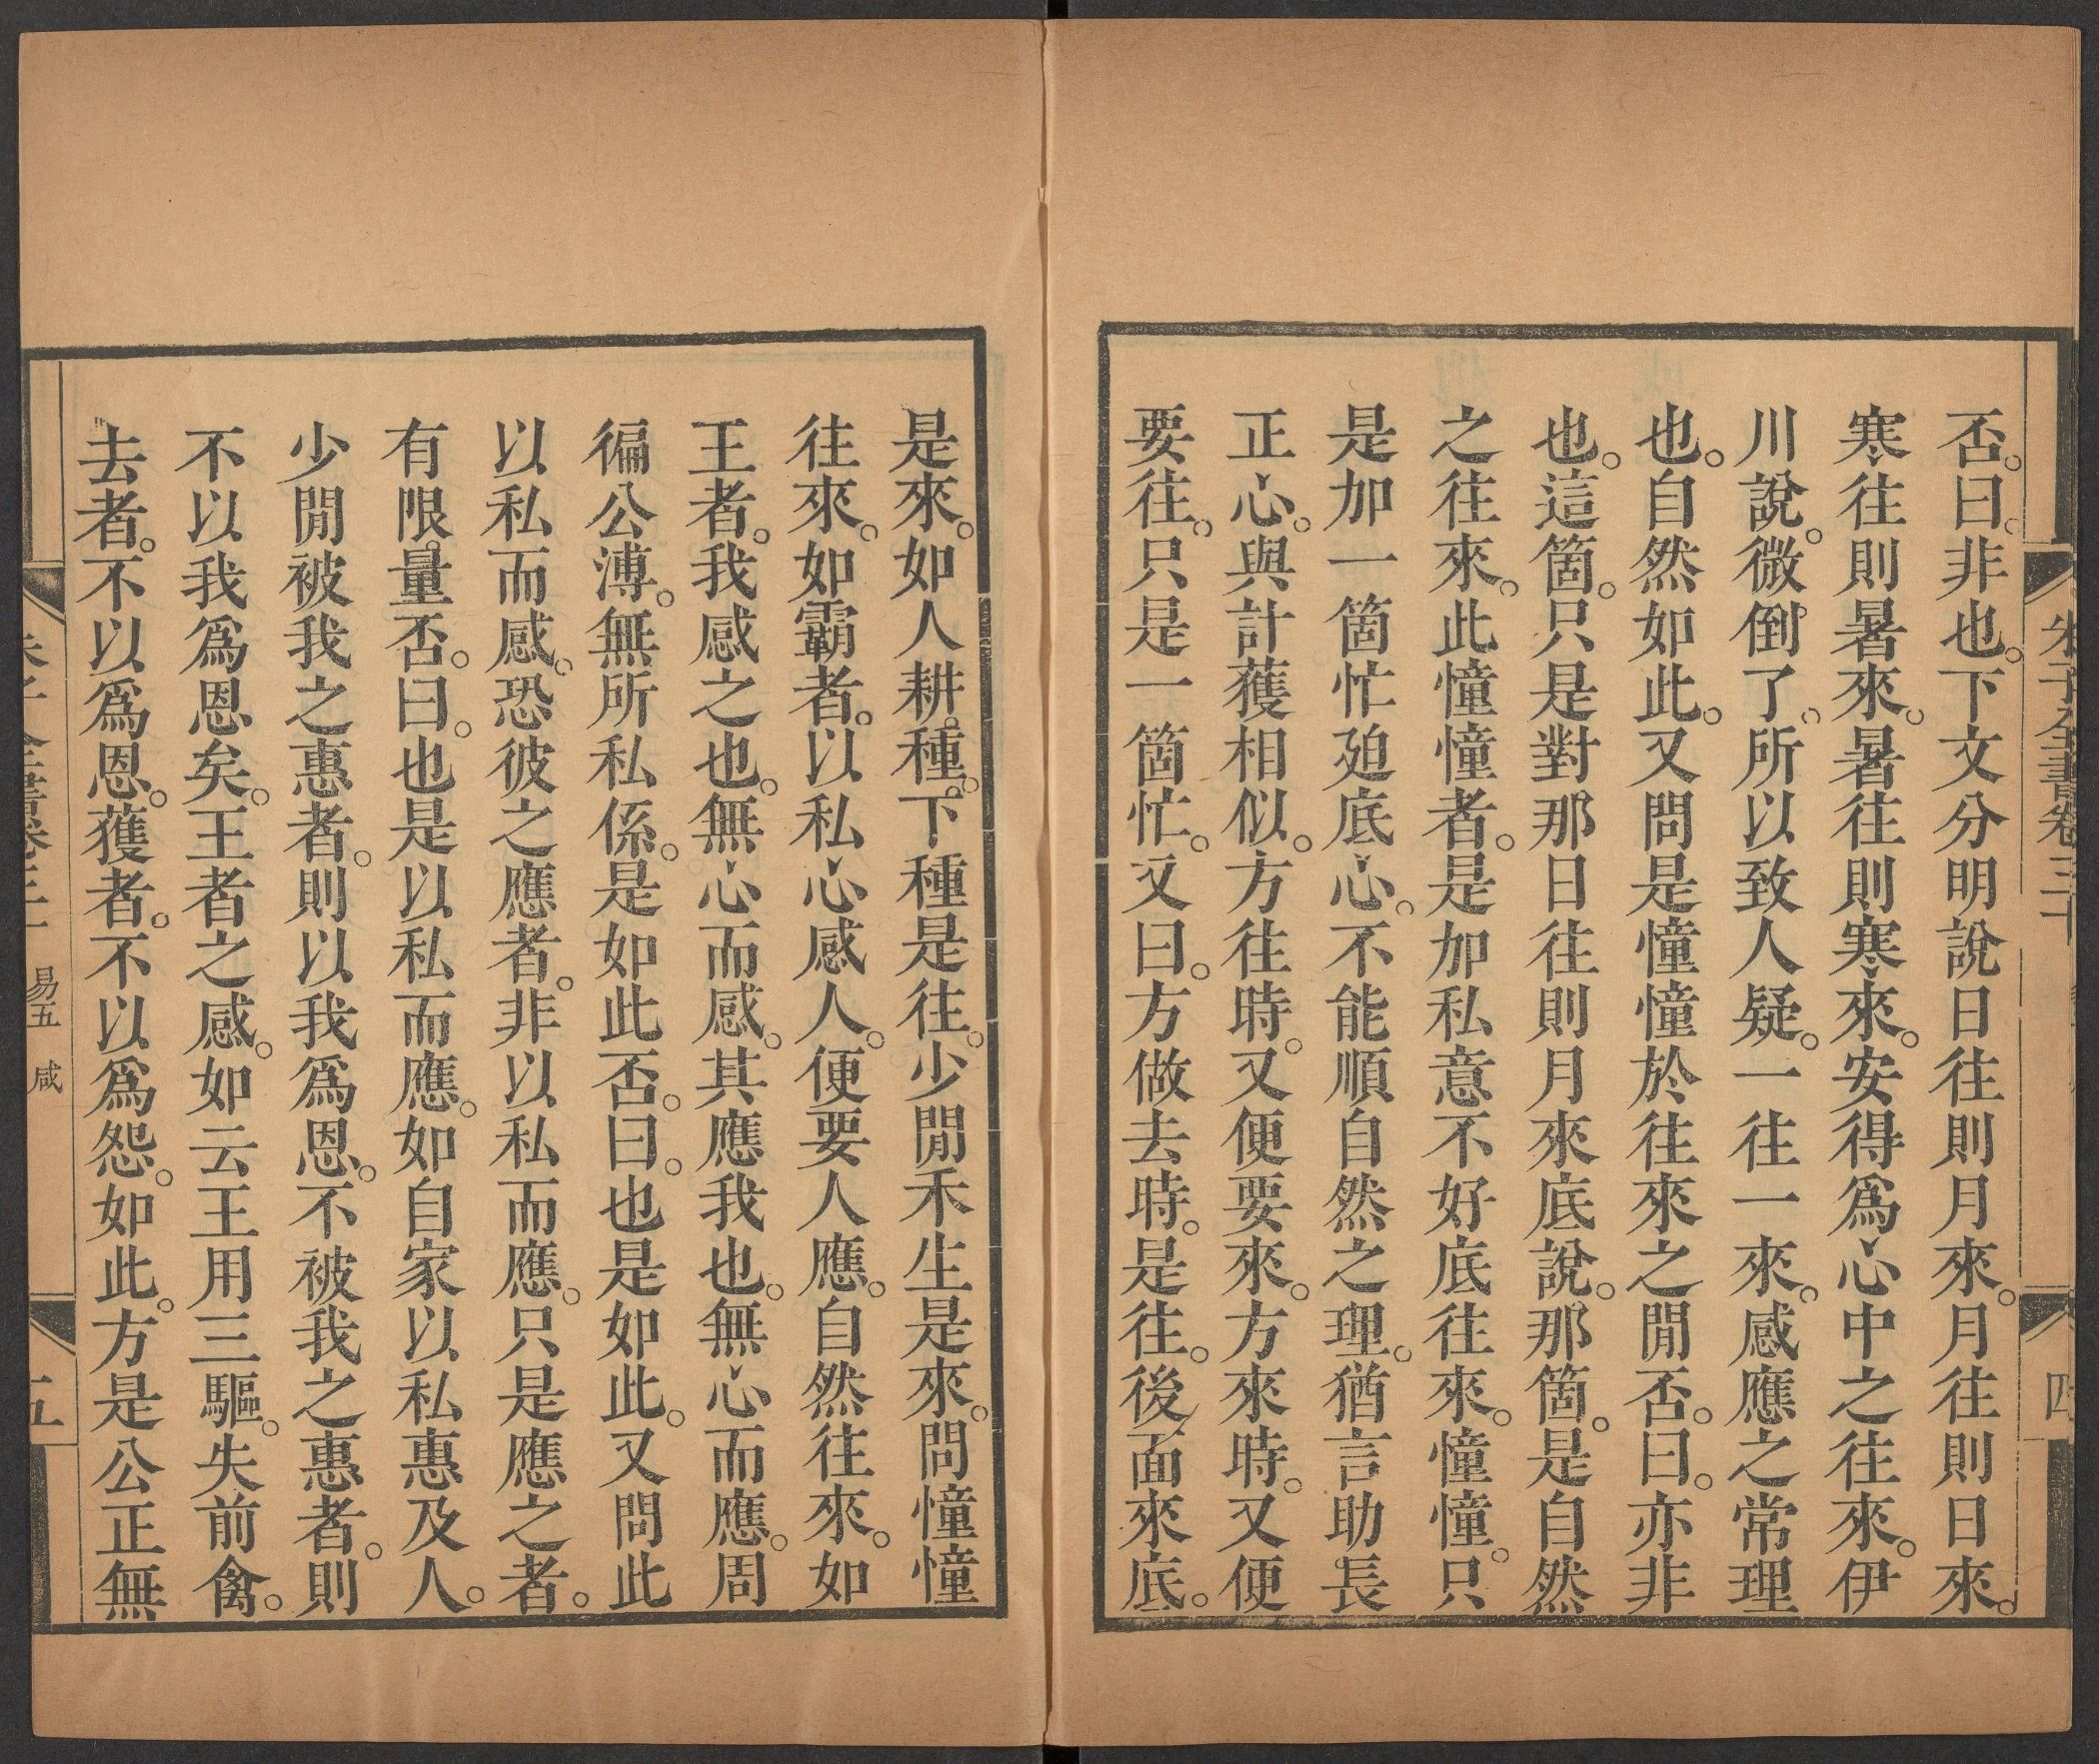 朱子全書卷三十
四
否。曰。非也。下文分明說日往則月來。月往則日來。
寒往則暑來。暑往則寒來。安得爲心中之往來。伊
川說。微倒了。所以致人疑。一往一來。感應之常理
也。自然如此。又問是憧憧於往來之閒否。曰。亦非
也。這箇。只是對那日往則月來底說。那箇。是自然
之往來。此憧憧者。是加私意不好底往來。憧憧。只
是加一箇忙廹底心。不能順自然之理。猶言助長
正心。與計獲相似。方往時。又便要來。方來時。又便
要往。只是一箇忙。又曰。方做去時。是往。後面來底。
是來。如人耕種。下種是往。少閒禾生是來。問憧憧
往來。如霸者。以私心感人。便要人應。自然往來。如
王者。我感之也。無心而感。其應我也。無心而應。周
徧公溥。無所私係。是如此否。曰。也是如此。又問此
以私而感。恐彼之應者。非以私而應。只是應之者。
有限量否。曰。也是以私而應。如自家以私惠及人。
少閒被我之惠者。則以我爲恩。不被我之惠者。則
不以我爲恩矣。王者之感。如云王用三驅。失前禽。
去者。不以爲恩。獲者。不以爲怨。如此。方是公正無
易五 咸
五